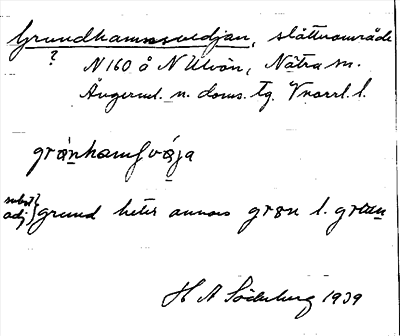 Grundhamnssvedjan, slåttområde
? N 160 å N Ulvön, Nätra sn.
Ångerml. n. doms. tg. Vnorrl. l.
gränhamsväja
subst} adj} grund heter annars grøn l. grøun
H A Söderberg 1939